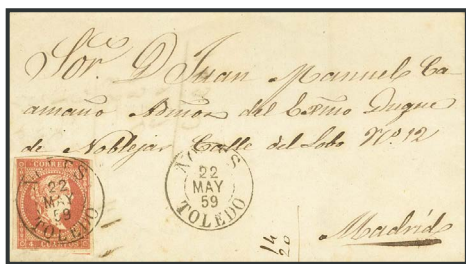 Sor. D Juan Manuel Ca
amaño Admor. del Exmo Duque
de Noblejas Calle del Lobo Nº. 12
CORREOS
22
MAY
59
TOLEDO
22
MAY
59
TOLEDO
Madrid
14
20